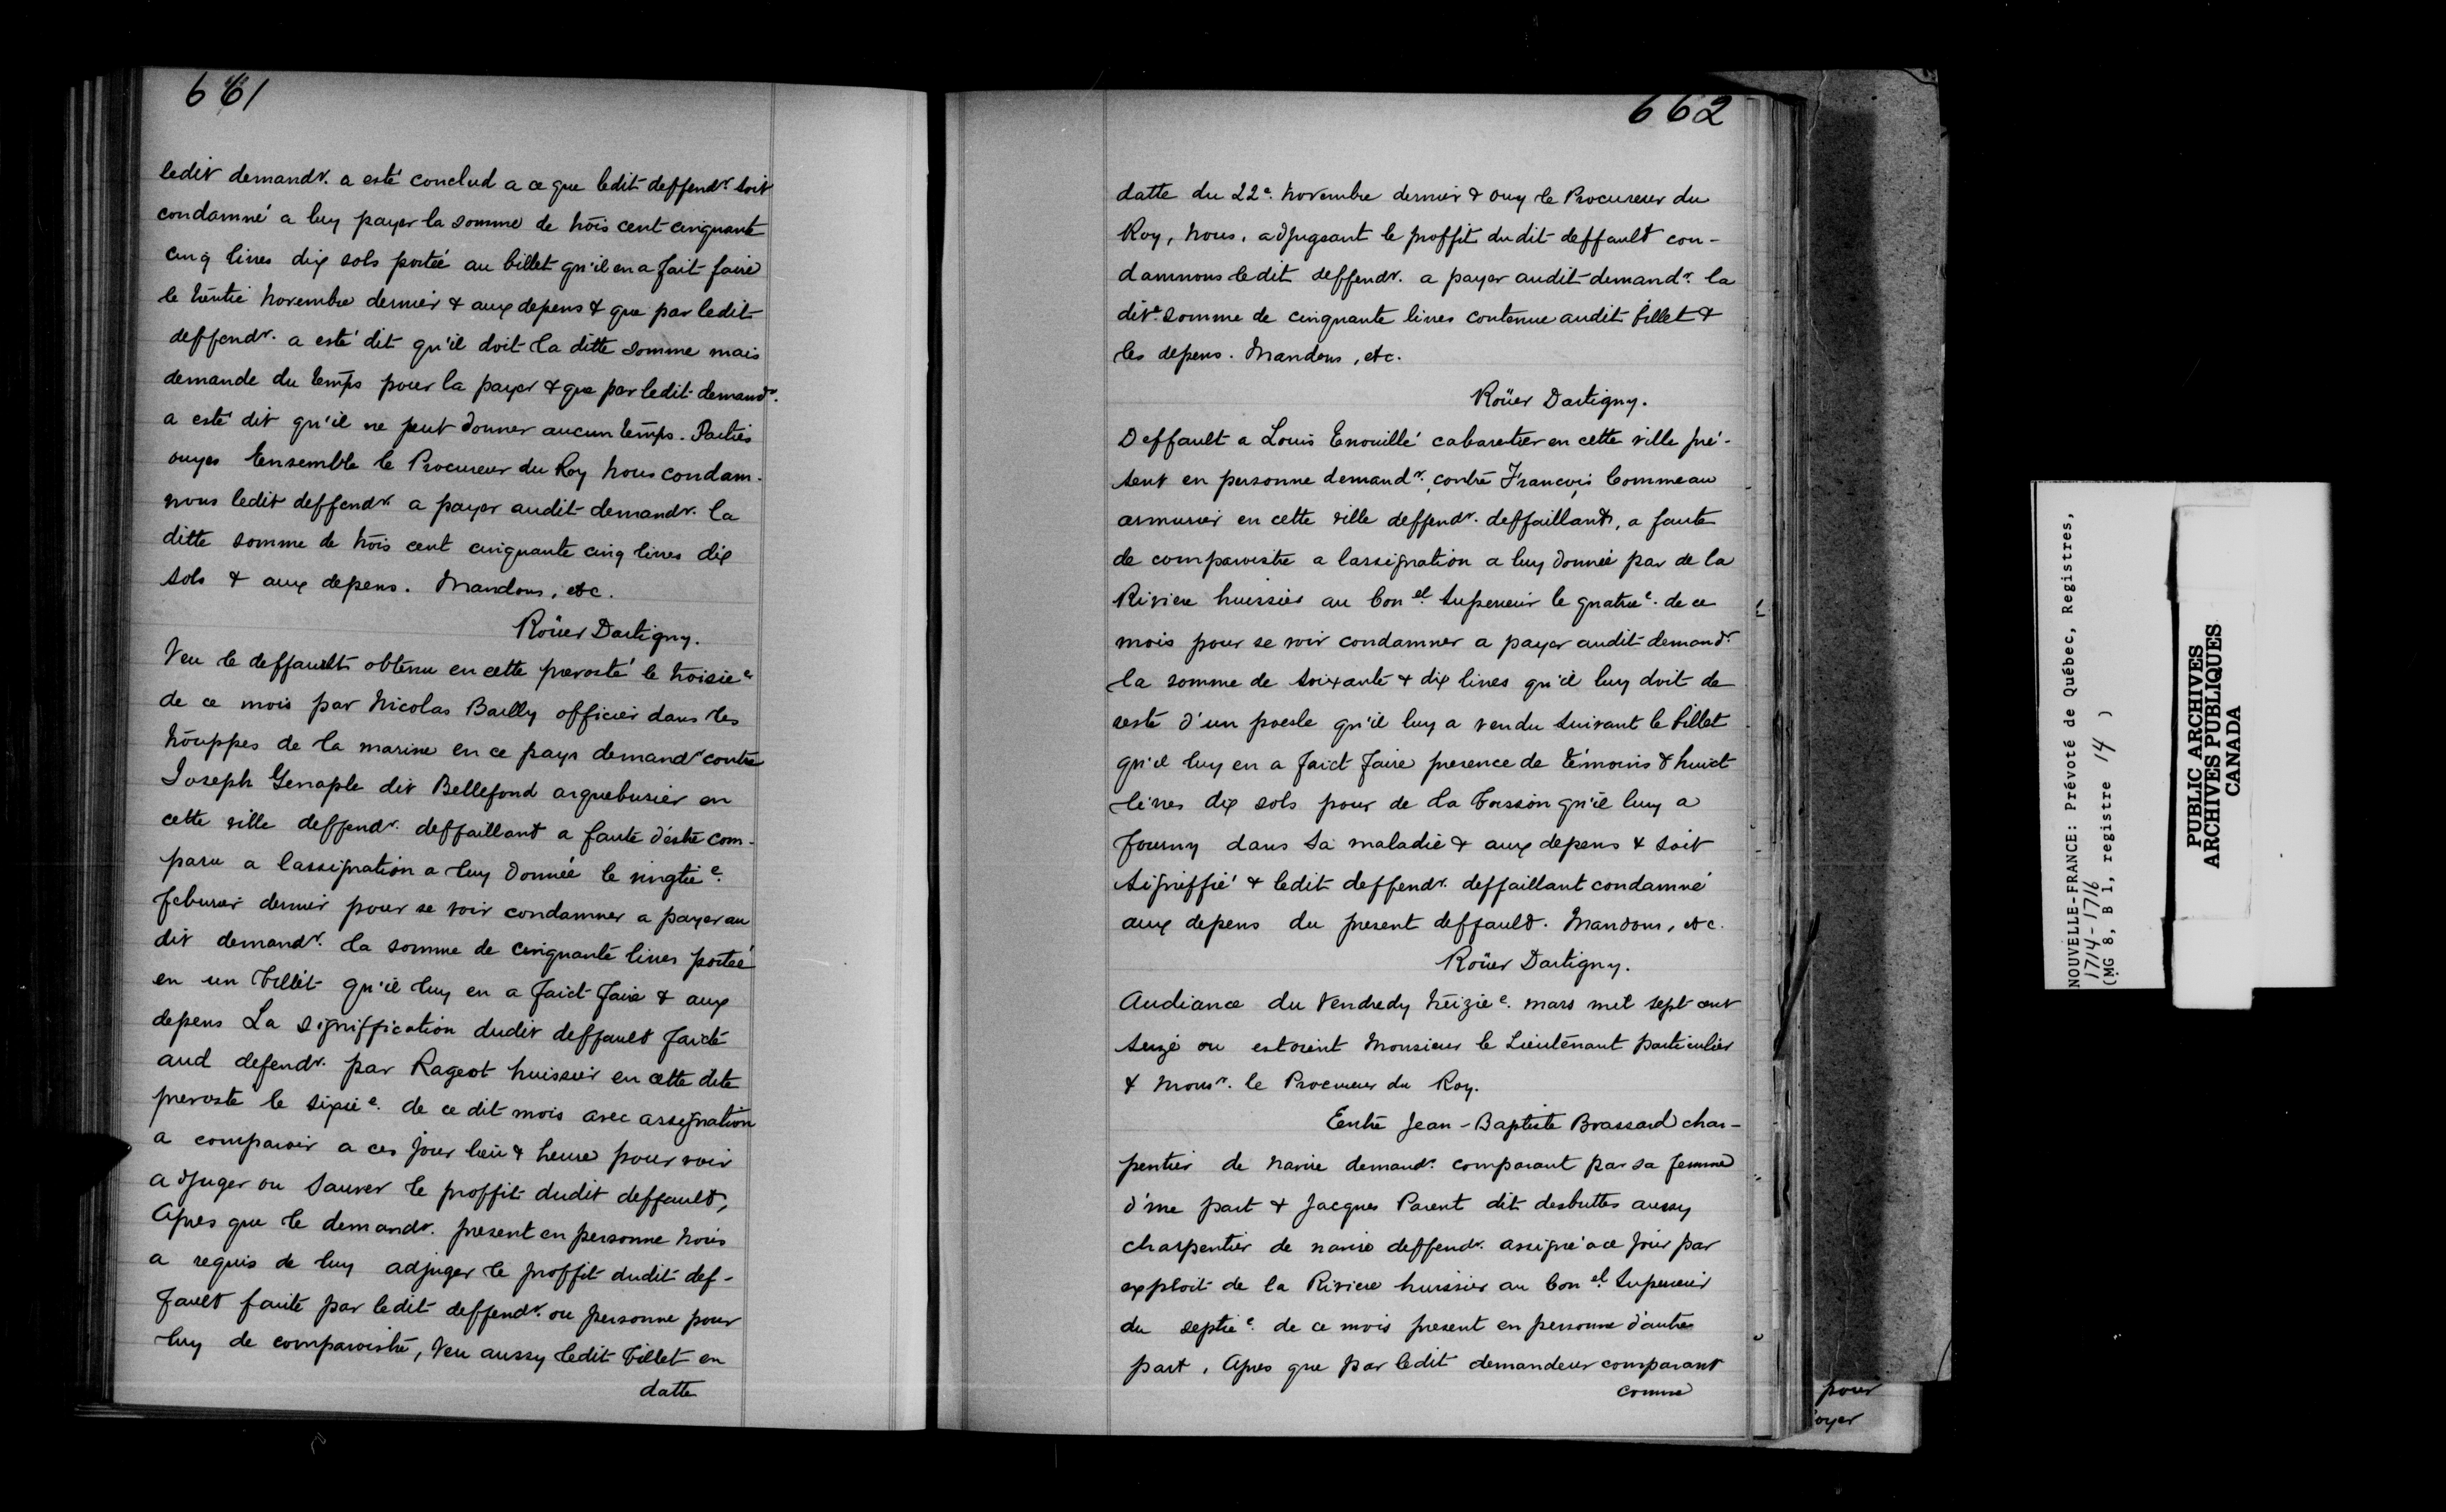 661
ledit demandr. a esté conclud a ce que ledit deffendr. soit
condamné a luy payer la somme de trois cent cinquante
cinq livres dix sols portée au billet qu'il en a fait faire
le trentie novembre dernier & aux depens & que par ledit
deffendr. a esté dit qu'il doit la ditte somme mais
demande du temps pour la payer & que par ledit demandr.
a esté dit qu'il ne peut donner aucun temps. Parties
ouyes Ensemble le Procureur du Roy nous condam-
nons ledit deffendr. a payer audit demandr. la
ditte somme de trois cent cinquante cinq livres dix
sols & aux depens. Mandons, etc.
Roüer Dartigny.
Veu le deffault obtenu en cette prevosté le troisie
de ce mois par Nicolas Bailly officier dans les
trouppes de la marine en ce pays demandr contre
Joseph Genaple dit Bellefond arquebusier en
cette ville deffendr. deffaillant a faute d'estre com-
paru a lassignation a luy donnée le vingtie.
Febvrier dernier pour se voir condamner a payer au
dit demandr. la somme de cinquante livres portée
en un billet qu'il luy en a faict faire & aux
depens La signiffication dudit deffault faicte
aud defendr. par Rageot huissier en cette dite
prevosté le sixie. de ce dit mois avec assignation
a comparoir a ces jour lieu & heure pour voir
adjuger ou sauver le proffit dudit deffault,
Apres que le demandr. present en personne nous
a requis de luy adjuger le proffit dudit def-
fault faute par ledit deffendr. ou personne pour
luy de comparoistre, Veu aussy ledit billet en
datte
662
datte du 22e. novembre dernier & ouy le Procureur du
Roy, Nous, adjugeant le proffit dudit deffault con-
damnons ledit deffendr. a payer audit demandr. la
dite. somme de cinquante livres contenue audit billet &
les depens. Mandons, etc.
Roüer Dartigny.
Deffault a Louis Enouillé cabaretier en cette ville pré-
sent en personne demandr. contre François Commeau
armurier en cette ville deffendr. deffaillant, a faute
de comparoistre a lassignation a luy donnée par de la
Riviere huissier au Conel. Superieur le quatrie. de ce
mois pour se voir condamner a payer audit demandr
la somme de soixante & dix livres qu'il luy doit de
reste d'un poesle qu'il luy a vendu suivant le billet
qu'il luy en a faict faire presence de témoins & huict
livres dix sols pour de la boisson qu'il luy a
fourny dans sa maladie & aux depens & soit
signiffié & ledit deffendr. deffaillant condamné
aux depens du present deffault. Mandons, etc.
Roüer Dartigny.
Audiance du Vendredy treizie. mars mil sept cent
seize ou estoient Monsieur le Lieutenant particulier
& Monsr. le Procureur du Roy.
Entre Jean-Baptiste Brassard char-
pentier de navire demandr. comparant par sa femme
d'une part & Jacques Parent dit desbuttes aussy
charpentier de navire deffendr. assigné a ce jour par
exploit de la Riviere huissier au Conel. Superieur
du septie. de ce mois present en personne d'autre
part, Apres que par ledit demandeur comparant
comme
pour
oyer
NOUVELLE-FRANCE: Prévoté de Québec, Registres,
1714-1716
(MG 8, B 1, registre 14 )
PUBLIC ARCHIVES
ARCHIVES PUBLIQUES
CANADA